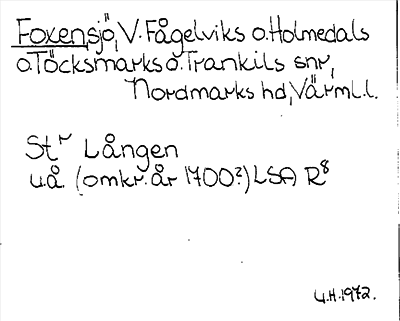 Foxensjö, V. Fågelviks o. Holmedals
o. Töcksmarks o. Trankils snr,
Nordmarks hd, Värml.l.
Stʳ Lången
u.å. (omkr. år 1700?) LSA R⁸
U.H. 1972.